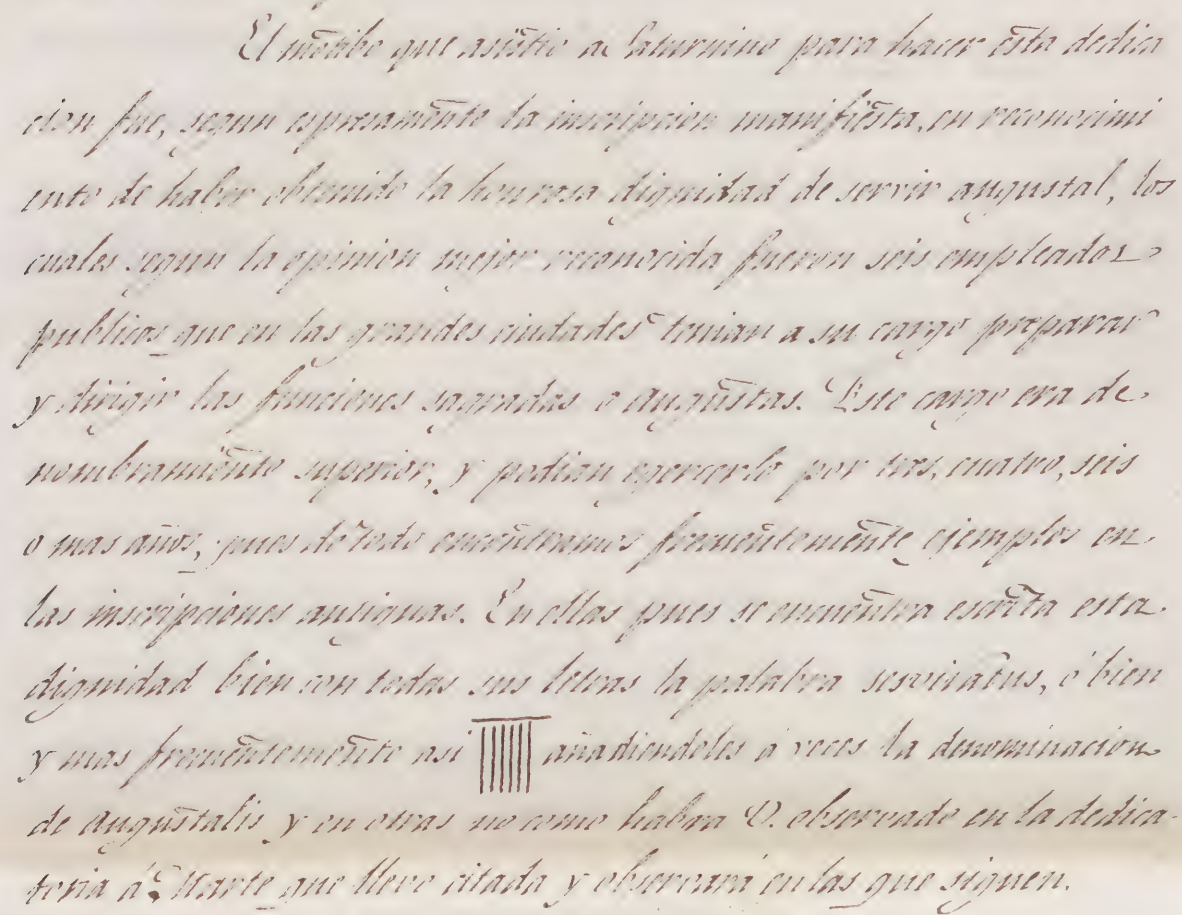 El motibo que asistio a Saturnino para hacer esta dedica
cion fue, segun espresamente la inscripcion manifiesta, en reconocimi
ento de haber obtenido la honrosa dignidad de sevir augustal, los
cuales segun la opinion mejor reconocida fueron seis empleados
publicos que en las grandes ciudades tenian a su cargo preparar
y dirigir las funciones sagradas o augustas. Este cargo era de
nombramiento superior, y podian egercerlo por tres, cuatro, seis
o mas años, pues de todo encontramos frecuentemente ejemplos en
las inscripciones antiguas. En ellas pues se encuentra escrita esta
dignidad bien con todas sus letras la palabra seviratus, ó bien
y mas frecuentemente asi IIIIII añadiendoles á veces la denominacion
de augustalis y en otras no como habra V. observado en la dedica-
toria á Marte que llevo citada y observará en las que siguen.